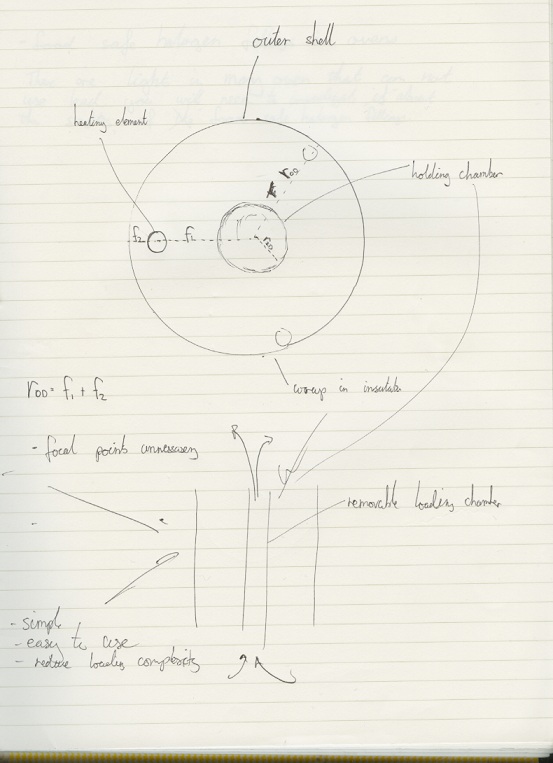 outer shell
heating element
r₀₀
holding chamber
f₂
f₁
r₀₀ = f₁ + f₂
wrap in insulator
- focal points unnecessary
removable loading chamber
-
- simple
- easy to use
- reduce loading complexity
A